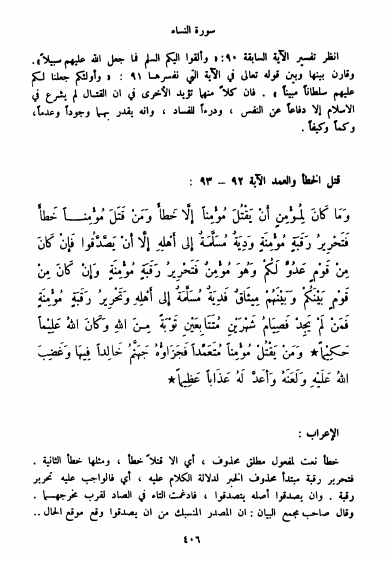 سورة النساء
انظر تفسير الآية السابقة ٩٠: « وألقوا اليكم السلم فما جعل الله عليهم سبيلاً».
وقارن بينها وبين قوله تعالى في الآية التي نفسرها ٩١ : « وأولئكم جعلنا لكم
عليهم سلطاناً مبيناً » . فان كلاً منهما تؤيد الأخرى في ان القتال لم يشرع في
الاسلام إلا دفاعاً عن النفس ، ودرءاً للفساد ، وانه يقدر بهما وجوداً وعدماً،
وكماً وكيفاً .
قتل الخطأ والعمد الآية ٩٢ – ٩٣ :
وَمَا كَانَ لِمُؤْمِنٍ أَنْ يَقْتُلَ مُؤْمِناً إِلَّا خَطَأً وَمَنْ قَتَلَ مُؤْمِنـاً خَطَأً
فَتَحْرِيرُ رَقَبَةٍ مُؤْمِنَةٍ وَدِيَةٌ مُسَلَّمَةٌ إِلَى أَهْلِهِ إِلَّا أَنْ يَصَّدَّقُوا فَإِنْ كَانَ
مِنْ قَوْمٍ عَدُوٍّ لَكُمْ وَهُوَ مُؤْمِنٌ فَتَحْرِيرُ رَقَبَةٍ مُؤْمِنَةٍ وَإِنْ كَانَ مِنْ
قَوْمٍ بَيْنَكُمْ وَبَيْنَهُمْ مِيثَاقٌ فَدِيَةٌ مُسَلَّمَةٌ إِلَى أَهْلِهِ وَتَحْرِيرُ رَقَبَةٍ مُؤْمِنَةٍ
فَمَنْ لَمْ يَجِدْ فَصِيَامُ شَهْرَيْنِ مُتَتَابِعَيْنِ تَوْبَةً مِنَ اللهِ وَكَانَ اللهُ عَلِيْماً
حَكِيْماً★ وَمَنْ يَقْتُلْ مُؤْمِناً مُتَعَمِّداً فَجَزَاؤُهُ جَهَنَّمُ خَالِداً فِيهَا وَغَضِبَ
اللهُ عَلَيْهِ وَلَعَنَهُ وَأَعَدَّ لَهُ عَذَاباً عَظِيماً★
الإعراب :
خطأ نعت لمفعول مطلق محذوف ، أي الا قتلاً خطأ ، ومثلها خطأ الثانية .
فتحرير رقبة مبتدأ محذوف الخبر لدلالة الكلام عليه ، أي فالواجب عليه تحرير
رقبة . وان يصدقوا أصله يتصدقوا ، فادغمت التاء في الصاد لقرب مخرجهما .
وقال صاحب مجمع البيان : ان المصدر المنسبك من ان يصدقوا وقع موقع الحال ..
٤٠٦